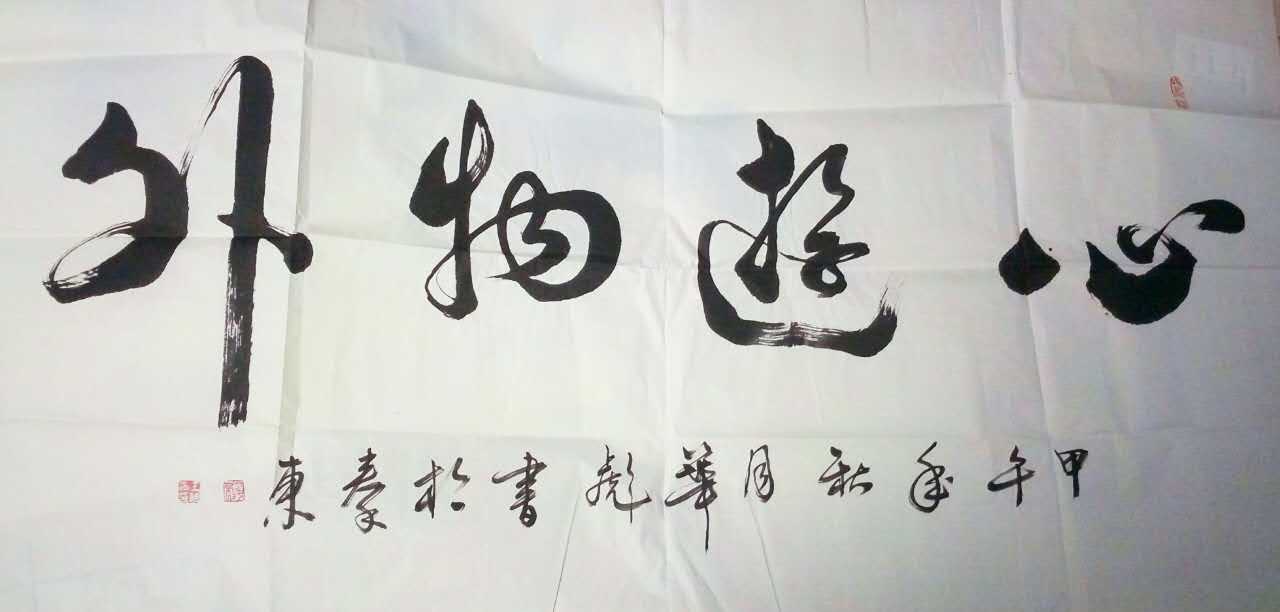 心遊物外
甲午年秋月華彪書於秦東